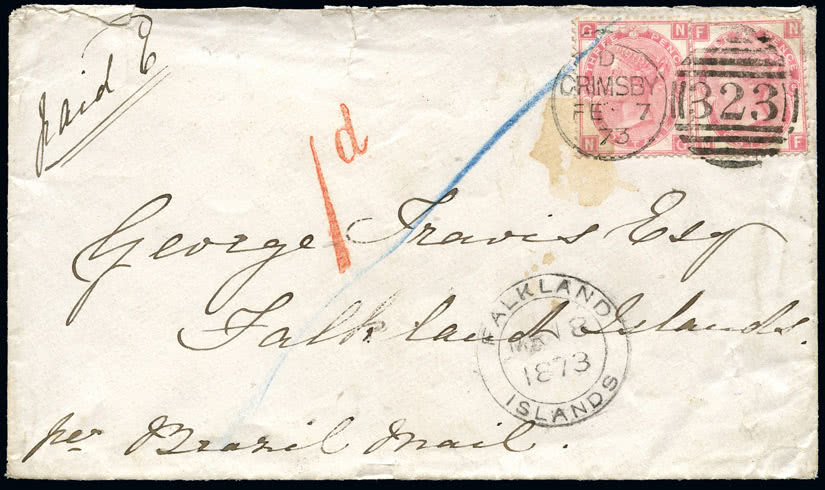 paid
G N F N
THREE PENCE
D
GRIMSBY
FE 7
73
323
N G N F
1d
George Travis Esq
Falkland Islands.
FALKLAND
8
1873
ISLANDS
per Brazil Mail.